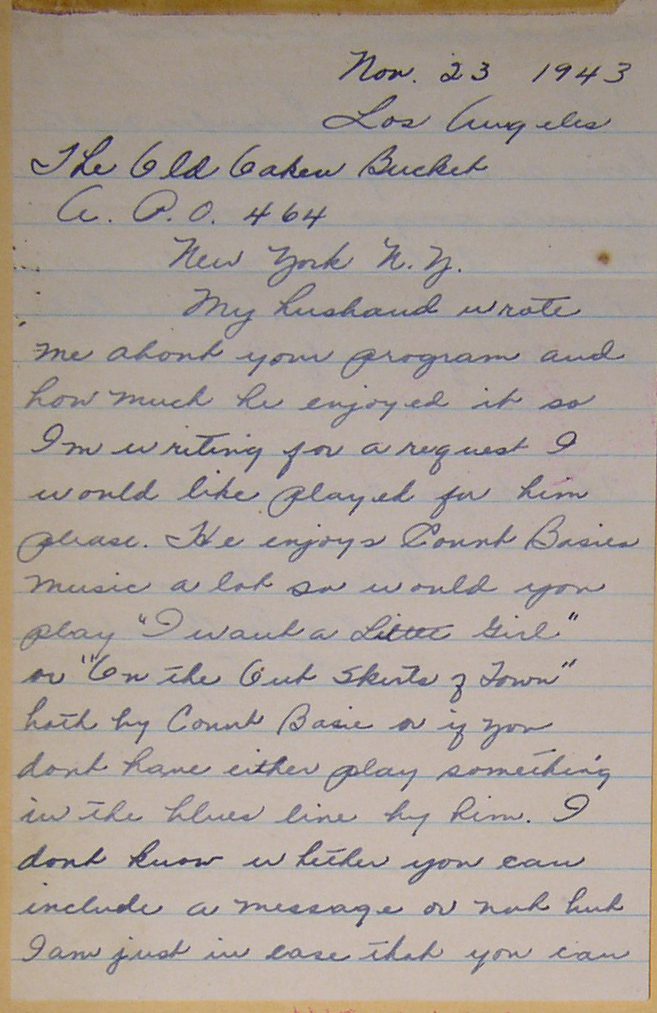 Nov. 23 1943
Los Angeles
The Old Oaken Bucket
A. P. O. 464
New York N. Y.
My husband wrote
me about your program and
how much he enjoyed it so
I'm writing for a request I
would like played for him
please. He enjoys Count Basies
music a lot so would you
play "I want a Little Girl"
or "On the Out Skirts of Town"
both by Count Basie or if you
dont have either play something
in the blues line by him. I
dont know whether you can
include a message or not but
I am just in case that you can